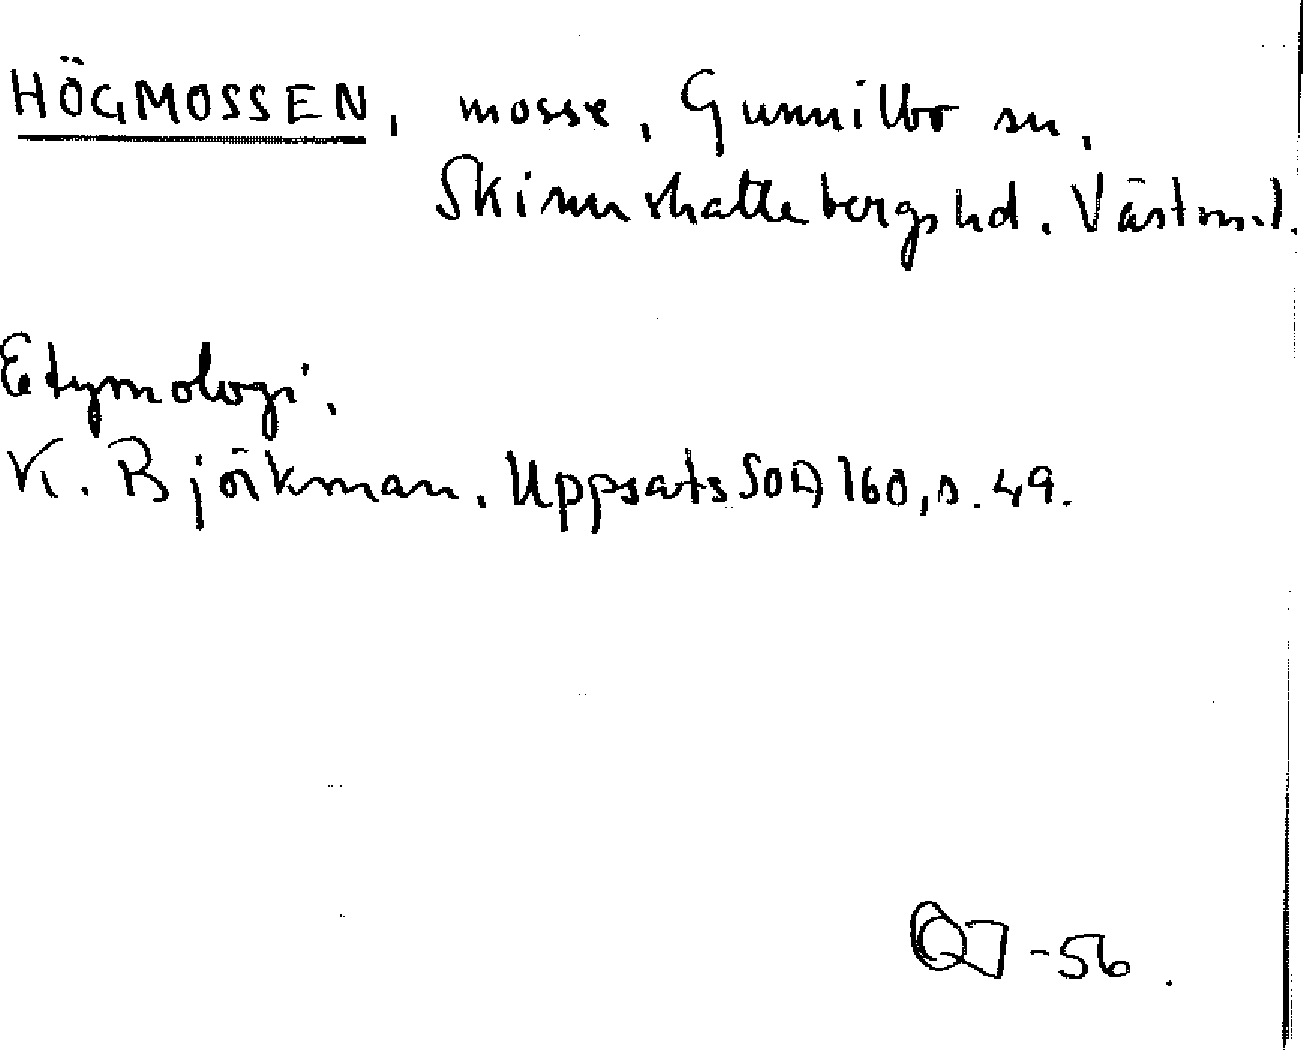 HÖGMOSSEN, mosse, Gunnilbo sn,
Skinnskattebergs hd. Västml.
Etymologi.
K. Björkman. Uppsats SOA 160, s. 49.
-56.